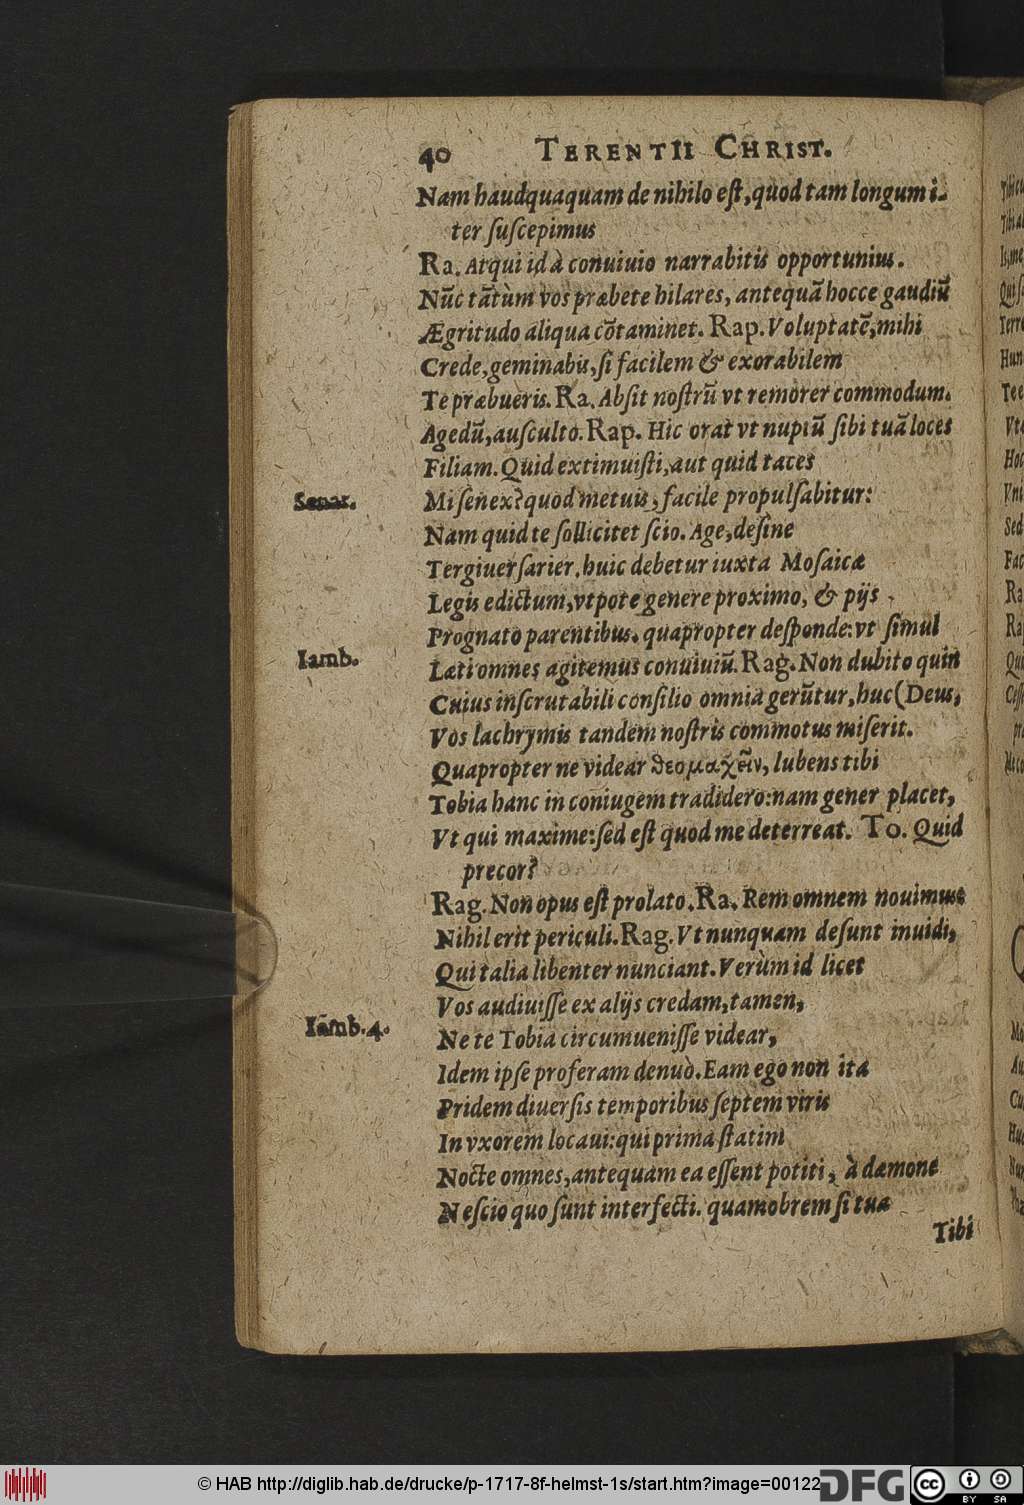 40 TERENTII CHRIST.
Nam haudquaquam de nihilo eſt, quod tam longum i-
ter ſuſcepimus
Ra. Atqui id à conuiuio narrabitis opportunius.
Nũc tãtùm vos præbete hilares, antequã hocce gaudiũ
Ægritudo aliqua cõtaminet. Rap. Voluptatẽ, mihi
Crede, geminabis, ſi facilem & exorabilem
Te præbueris. Ra. Abſit noſtrũ vt remorer commodum.
Agedũ, auſculto. Rap. Hic orat vt nuptũ ſibi tuã loces
Filiam. Quid extimuiſti, aut quid taces
Senar. Mi ſenex? quod metuis, facile propulſabitur:
Nam quid te ſollicitet ſcio. Age, deſine
Tergiuerſarier, huic debetur iuxta Moſaicæ
Legis edictum, vtpote genere proximo, & pijs
Prognato parentibus. quapropter deſponde: vt ſimul
Iamb. Læti omnes agitemus conuiuiũ. Rag. Non dubito quin
Cuius inſcrutabili conſilio omnia gerũtur, huc (Deus,
Vos lachrymis tandem noſtris commotus miſerit.
Quapropter ne videar θεομαχεῖν, lubens tibi
Tobia hanc in coniugem tradidero: nam gener placet,
Vt qui maxime: ſed eſt quod me deterreat. To. Quid
precor?
Rag. Non opus eſt prolato. Ra. Rem omnem nouimus
Nihil erit periculi. Rag. Vt nunquam deſunt inuidi,
Qui talia libenter nunciant. Verùm id licet
Vos audiuiſſe ex alijs credam, tamen,
Iamb. 4. Ne te Tobia circumueniſſe videar,
Idem ipſe proferam denuò. Eam ego non ita
Pridem diuerſis temporibus ſeptem viris
In vxorem locaui: qui prima ſtatim
Nocte omnes, antequam ea eſſent potiti, à dæmone
Neſcio quo ſunt interfecti. quamobrem ſi tua
Tibi
© HAB http://diglib.hab.de/drucke/p-1717-8f-helmst-1s/start.htm?image=00122
DFG
cc BY SA